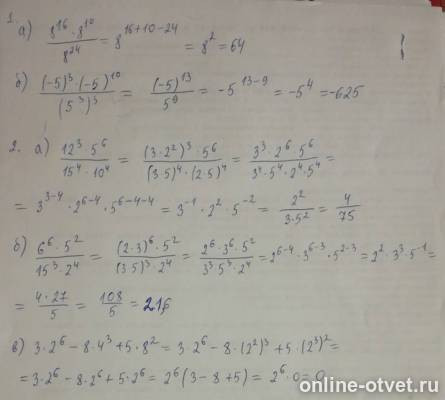 1. а) 8^16 · 8^10 / 8^24 = 8^(16+10-24) = 8^2 = 64
б) (-5)^3 · (-5)^10 / (5^3)^3 = (-5)^13 / 5^9 = -5^(13-9) = -5^4 = -625
2. а) 12^3 · 5^6 / 15^4 · 10^4 = (3·2^2)^3 · 5^6 / (3·5)^4 · (2·5)^4 = 3^3 · 2^6 · 5^6 / 3^4 · 5^4 · 2^4 · 5^4 =
= 3^(3-4) · 2^(6-4) · 5^(6-4-4) = 3^-1 · 2^2 · 5^-2 = 2^2 / 3·5^2 = 4 / 75
б) 6^6 · 5^2 / 15^3 · 2^4 = (2·3)^6 · 5^2 / (3·5)^3 · 2^4 = 2^6 · 3^6 · 5^2 / 3^3 · 5^3 · 2^4 = 2^(6-4) · 3^(6-3) · 5^(2-3) = 2^2 · 3^3 · 5^-1 =
= 4·27 / 5 = 108 / 5 = 21,6
в) 3·2^6 - 8·4^3 + 5·8^2 = 3·2^6 - 8·(2^2)^3 + 5·(2^3)^2 =
= 3·2^6 - 8·2^6 + 5·2^6 = 2^6 (3 - 8 + 5) = 2^6 · 0 = 0
online-otvet.ru